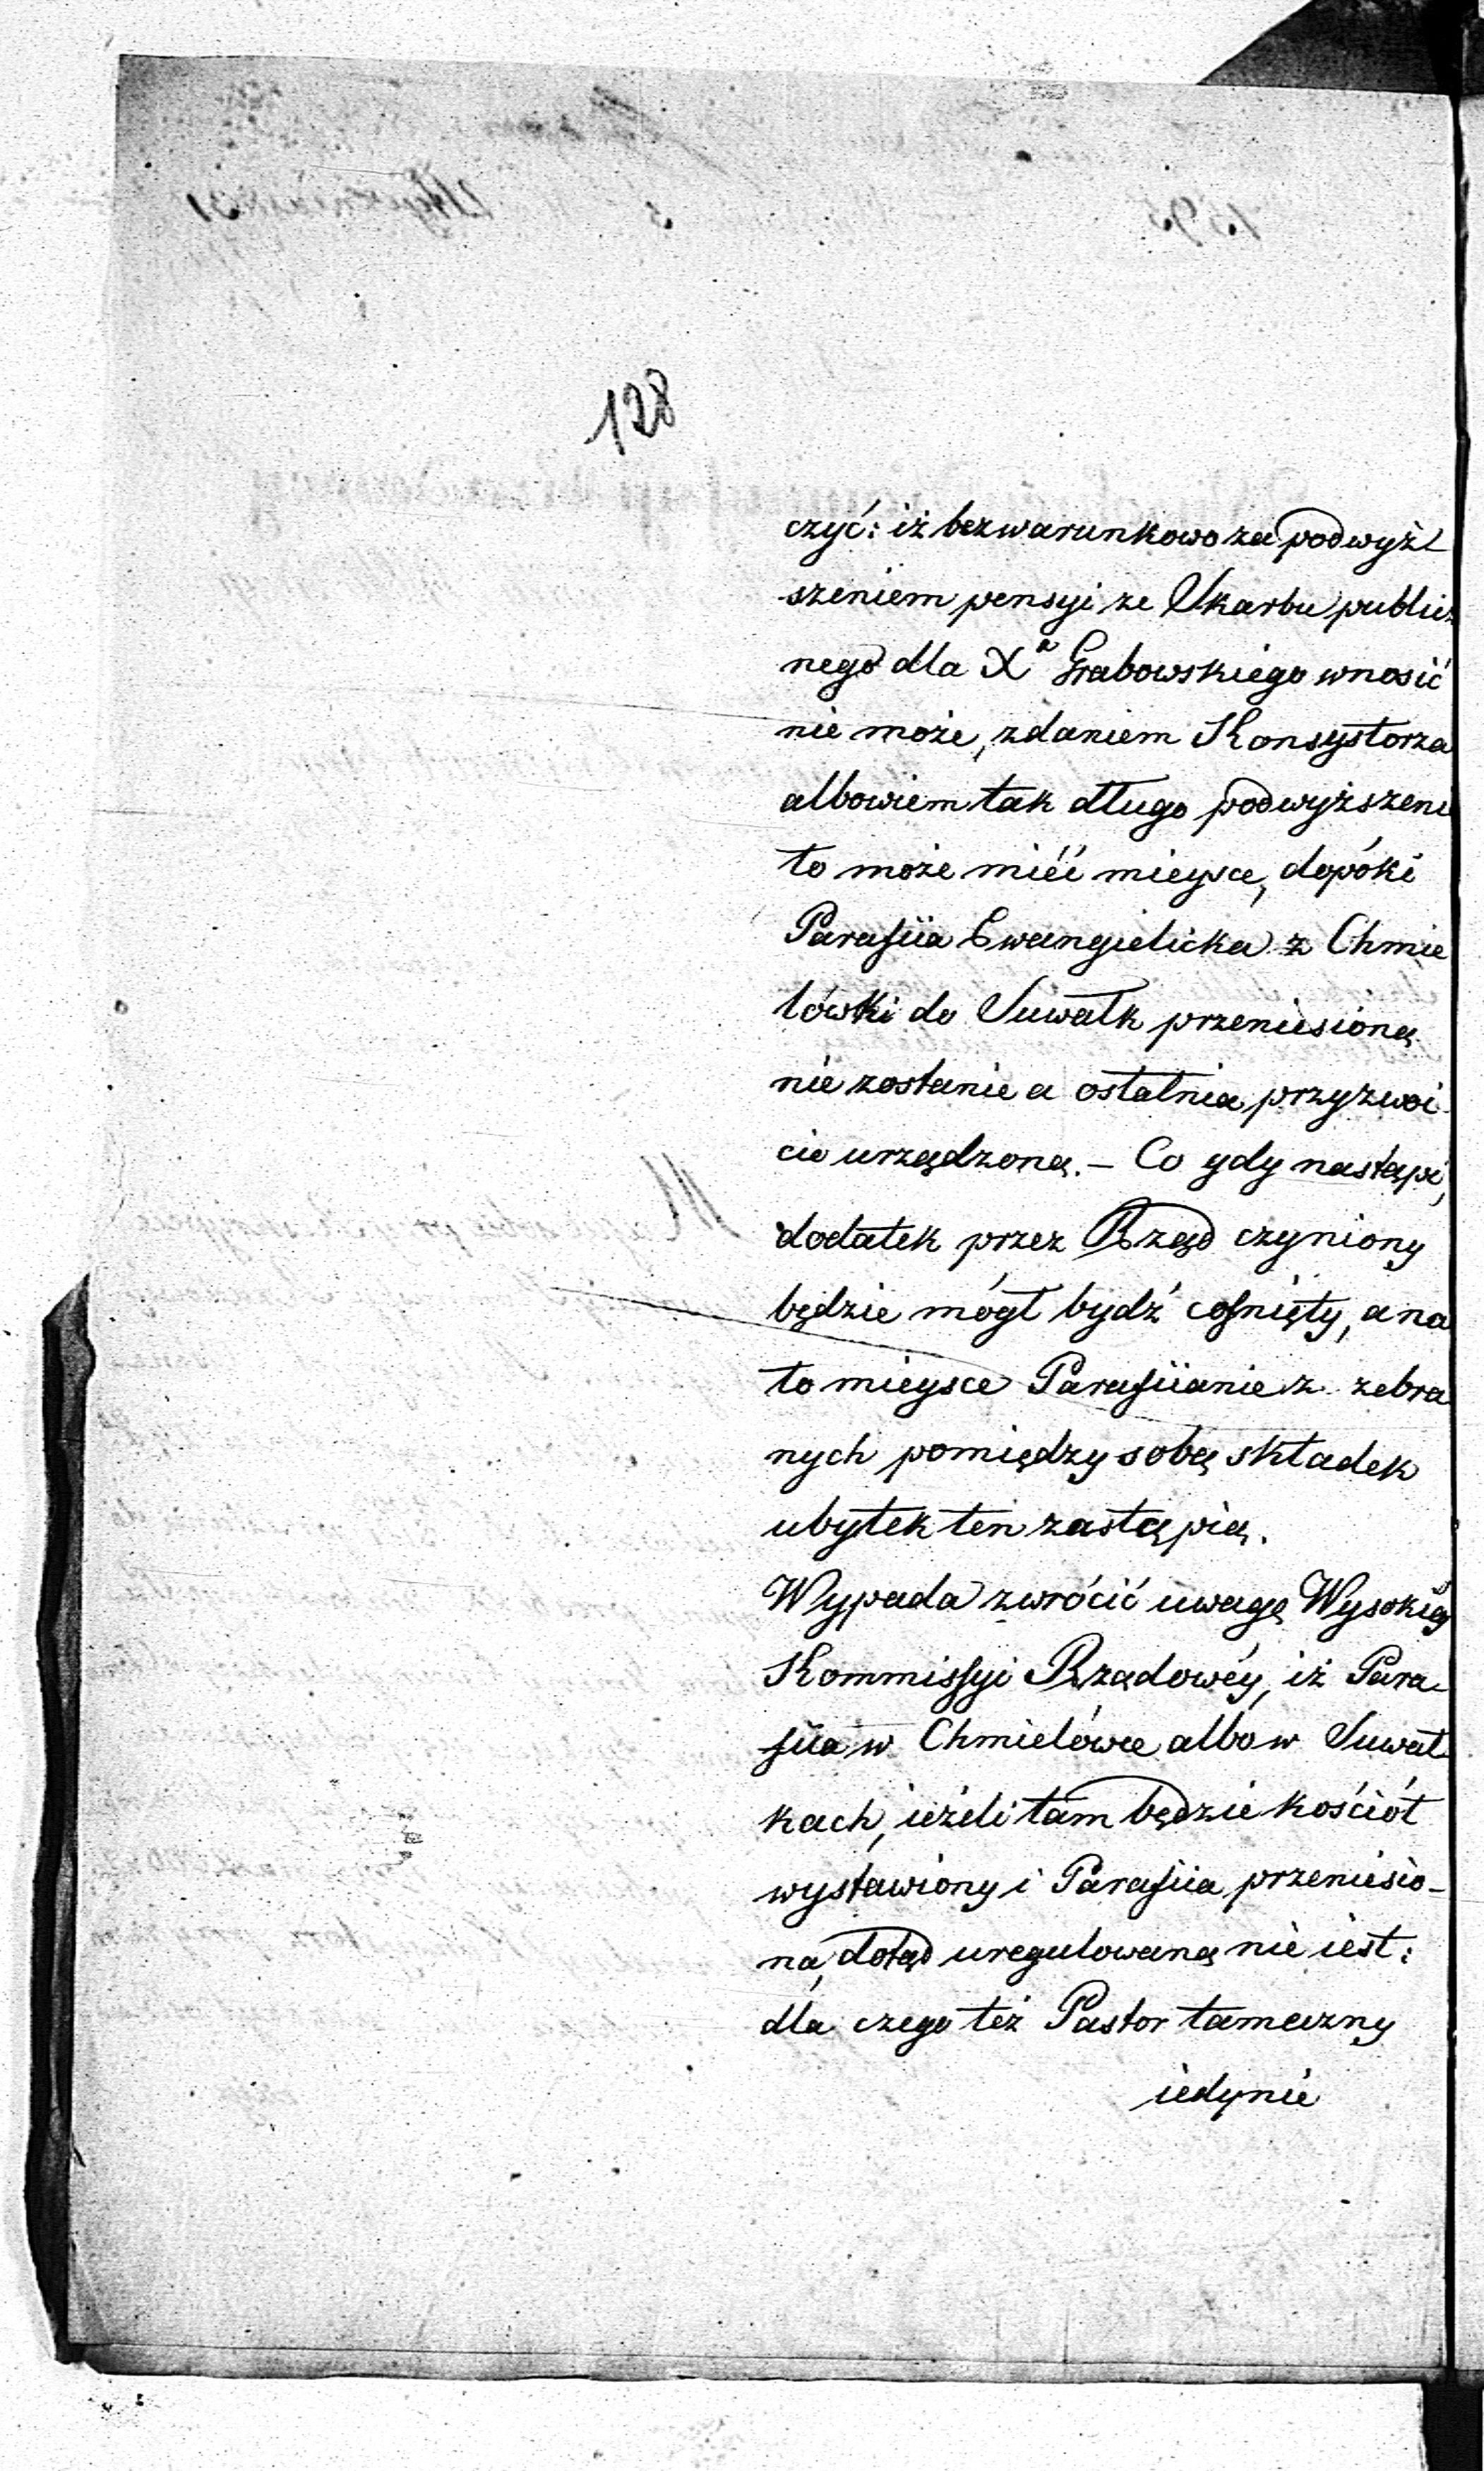 128
czyć: iż bezwarunkowo za podwyż-
szeniem pensyi ze Skarbu publicz
nego dla Xa Grabowskiego wnosić
nie może, zdaniem Konsystorza
albowiem tak długo podwyższenie
to może mieć mieysce, dopóki
Parafiia Ewangielicka z Chmie
lówki do Suwałk przeniesioną
nie zostanie a ostatnia przyzwoi-
cie urządzoną. – Co gdy nastąpi,
dodatek przez Rząd czyniony
będzie mógł bydź cofnięty, a na
to mieysce Parafiianie z zebra
nych pomiędzy sobą składek
ubytek ten zastąpią.
Wypada zwrócić uwagę Wysokiéy
Kommissyi Rządowéy, iż Para-
fiia w Chmielówce albo w Suwał-
kach, ieżeli tam będzie kościół
wystawiony i Parafiia przeniesio-
na, dotąd uregulowaną nie iest:
dla czego też Pastor tameczny
iedynie